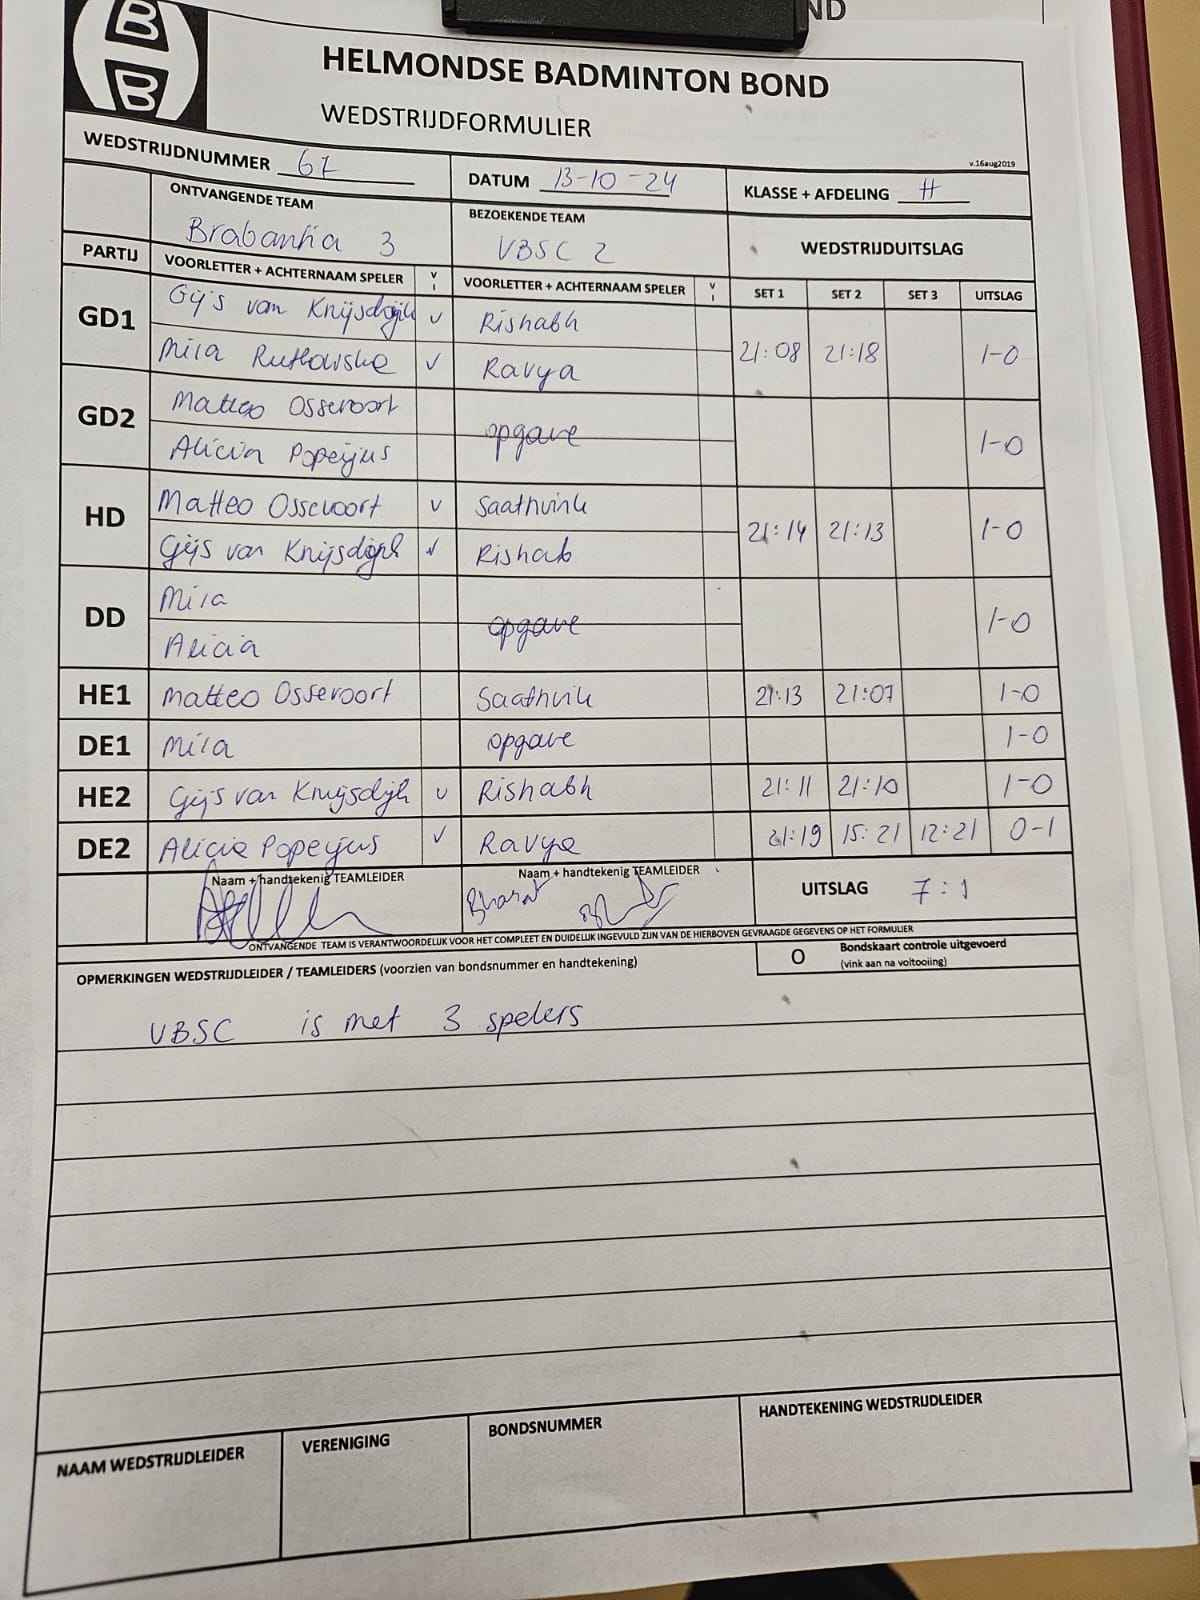 ND
B
B
HELMONDSE BADMINTON BOND
WEDSTRIJDFORMULIER
v.16aug2019
WEDSTRIJDNUMMER 67
DATUM 13-10-24
KLASSE + AFDELING H
ONTVANGENDE TEAM
Brabantia 3
BEZOEKENDE TEAM
VBSC 2
WEDSTRIJDUITSLAG
PARTIJ VOORLETTER + ACHTERNAAM SPELER V I VOORLETTER + ACHTERNAAM SPELER V I SET 1 SET 2 SET 3 UITSLAG
GD1 Gijs van Knijsdijk v Rishabh 21:08 21:18 1-0
Mila Rutkowska v Ravya
GD2 Matteo Ossevoort opgave 1-0
Alicia Popeijus
HD Matteo Ossevoort v Saathvik 21:14 21:13 1-0
Gijs van Knijsdijk v Rishab
DD Mila opgave 1-0
Alicia
HE1 Matteo Ossevoort Saathvik 21:13 21:07 1-0
DE1 Mila opgave 1-0
HE2 Gijs van Knijsdijk v Rishabh 21:11 21:10 1-0
DE2 Alicia Popeijus v Ravya 21:19 15:21 12:21 0-1
Naam + handtekenig TEAMLEIDER
Naam + handtekenig TEAMLEIDER
Bharat
UITSLAG 7:1
ONTVANGENDE TEAM IS VERANTWOORDELIJK VOOR HET COMPLEET EN DUIDELIJK INGEVULD ZIJN VAN DE HIERBOVEN GEVRAAGDE GEGEVENS OP HET FORMULIER
O Bondskaart controle uitgevoerd
(vink aan na voltooiing)
OPMERKINGEN WEDSTRIJDLEIDER / TEAMLEIDERS (voorzien van bondsnummer en handtekening)
VBSC is met 3 spelers
NAAM WEDSTRIJDLEIDER
VERENIGING
BONDSNUMMER
HANDTEKENING WEDSTRIJDLEIDER